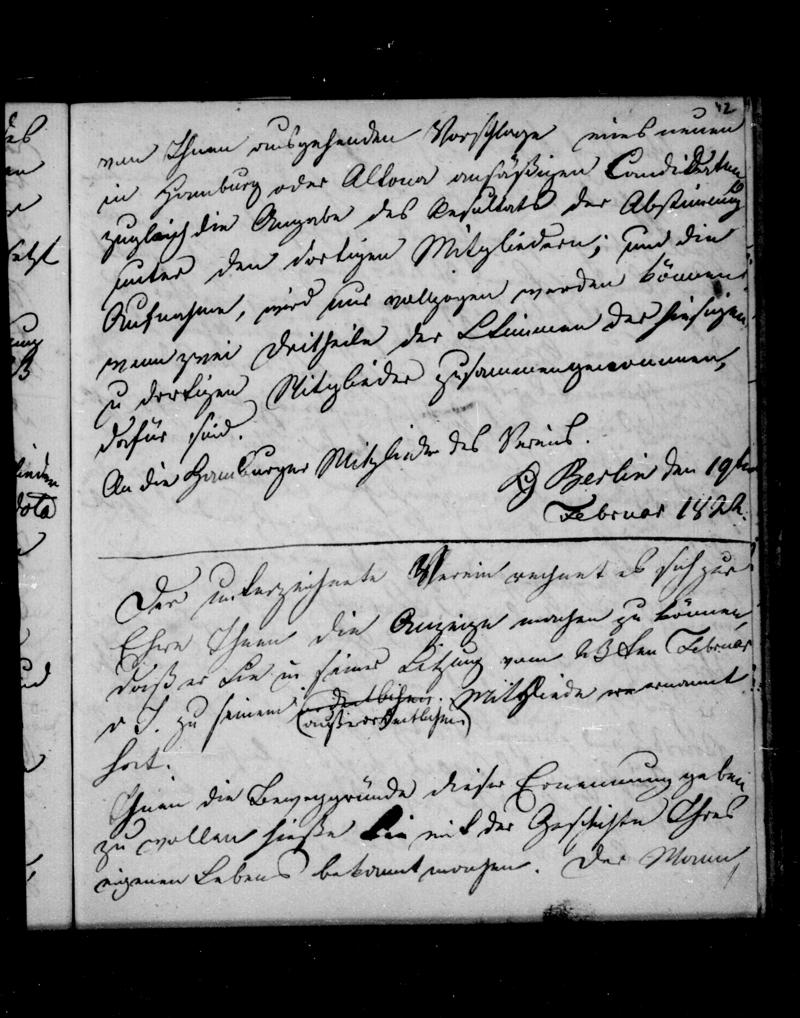 42
von Ihnen ausgehenden Vorschlage eines neuen
in Hamburg oder Altona ansäßigen Candidaten
zugleich die Angabe des Resultats der Abstimmung
unter den dortigen Mitgliedern; und die
Aufnahme, wird nur vollzogen werden können
wenn zwei Dritheile der Stimmen der hiesigen
u dortigen Mitglieder zusammengenommen,
dafür sind.
An die Hamburger Mitglieder des Vereins.
Berlin den 19ten
Februar 1822.
Der unterzeichnete Verein rechnet es sich zur
Ehre Ihnen die Anzeige machen zu können,
daß er Sie in seiner Sitzung vom 23ten Februar
d J. zu seinem ordentlichen Mitgliede ernannt
(außerordentlichen)
hat.
Ihnen die Beweggründe dieser Ernennung geben
zu wollen hieße Sie mit der Geschichte Ihres
eigenen Lebens bekannt machen. Der Mann,